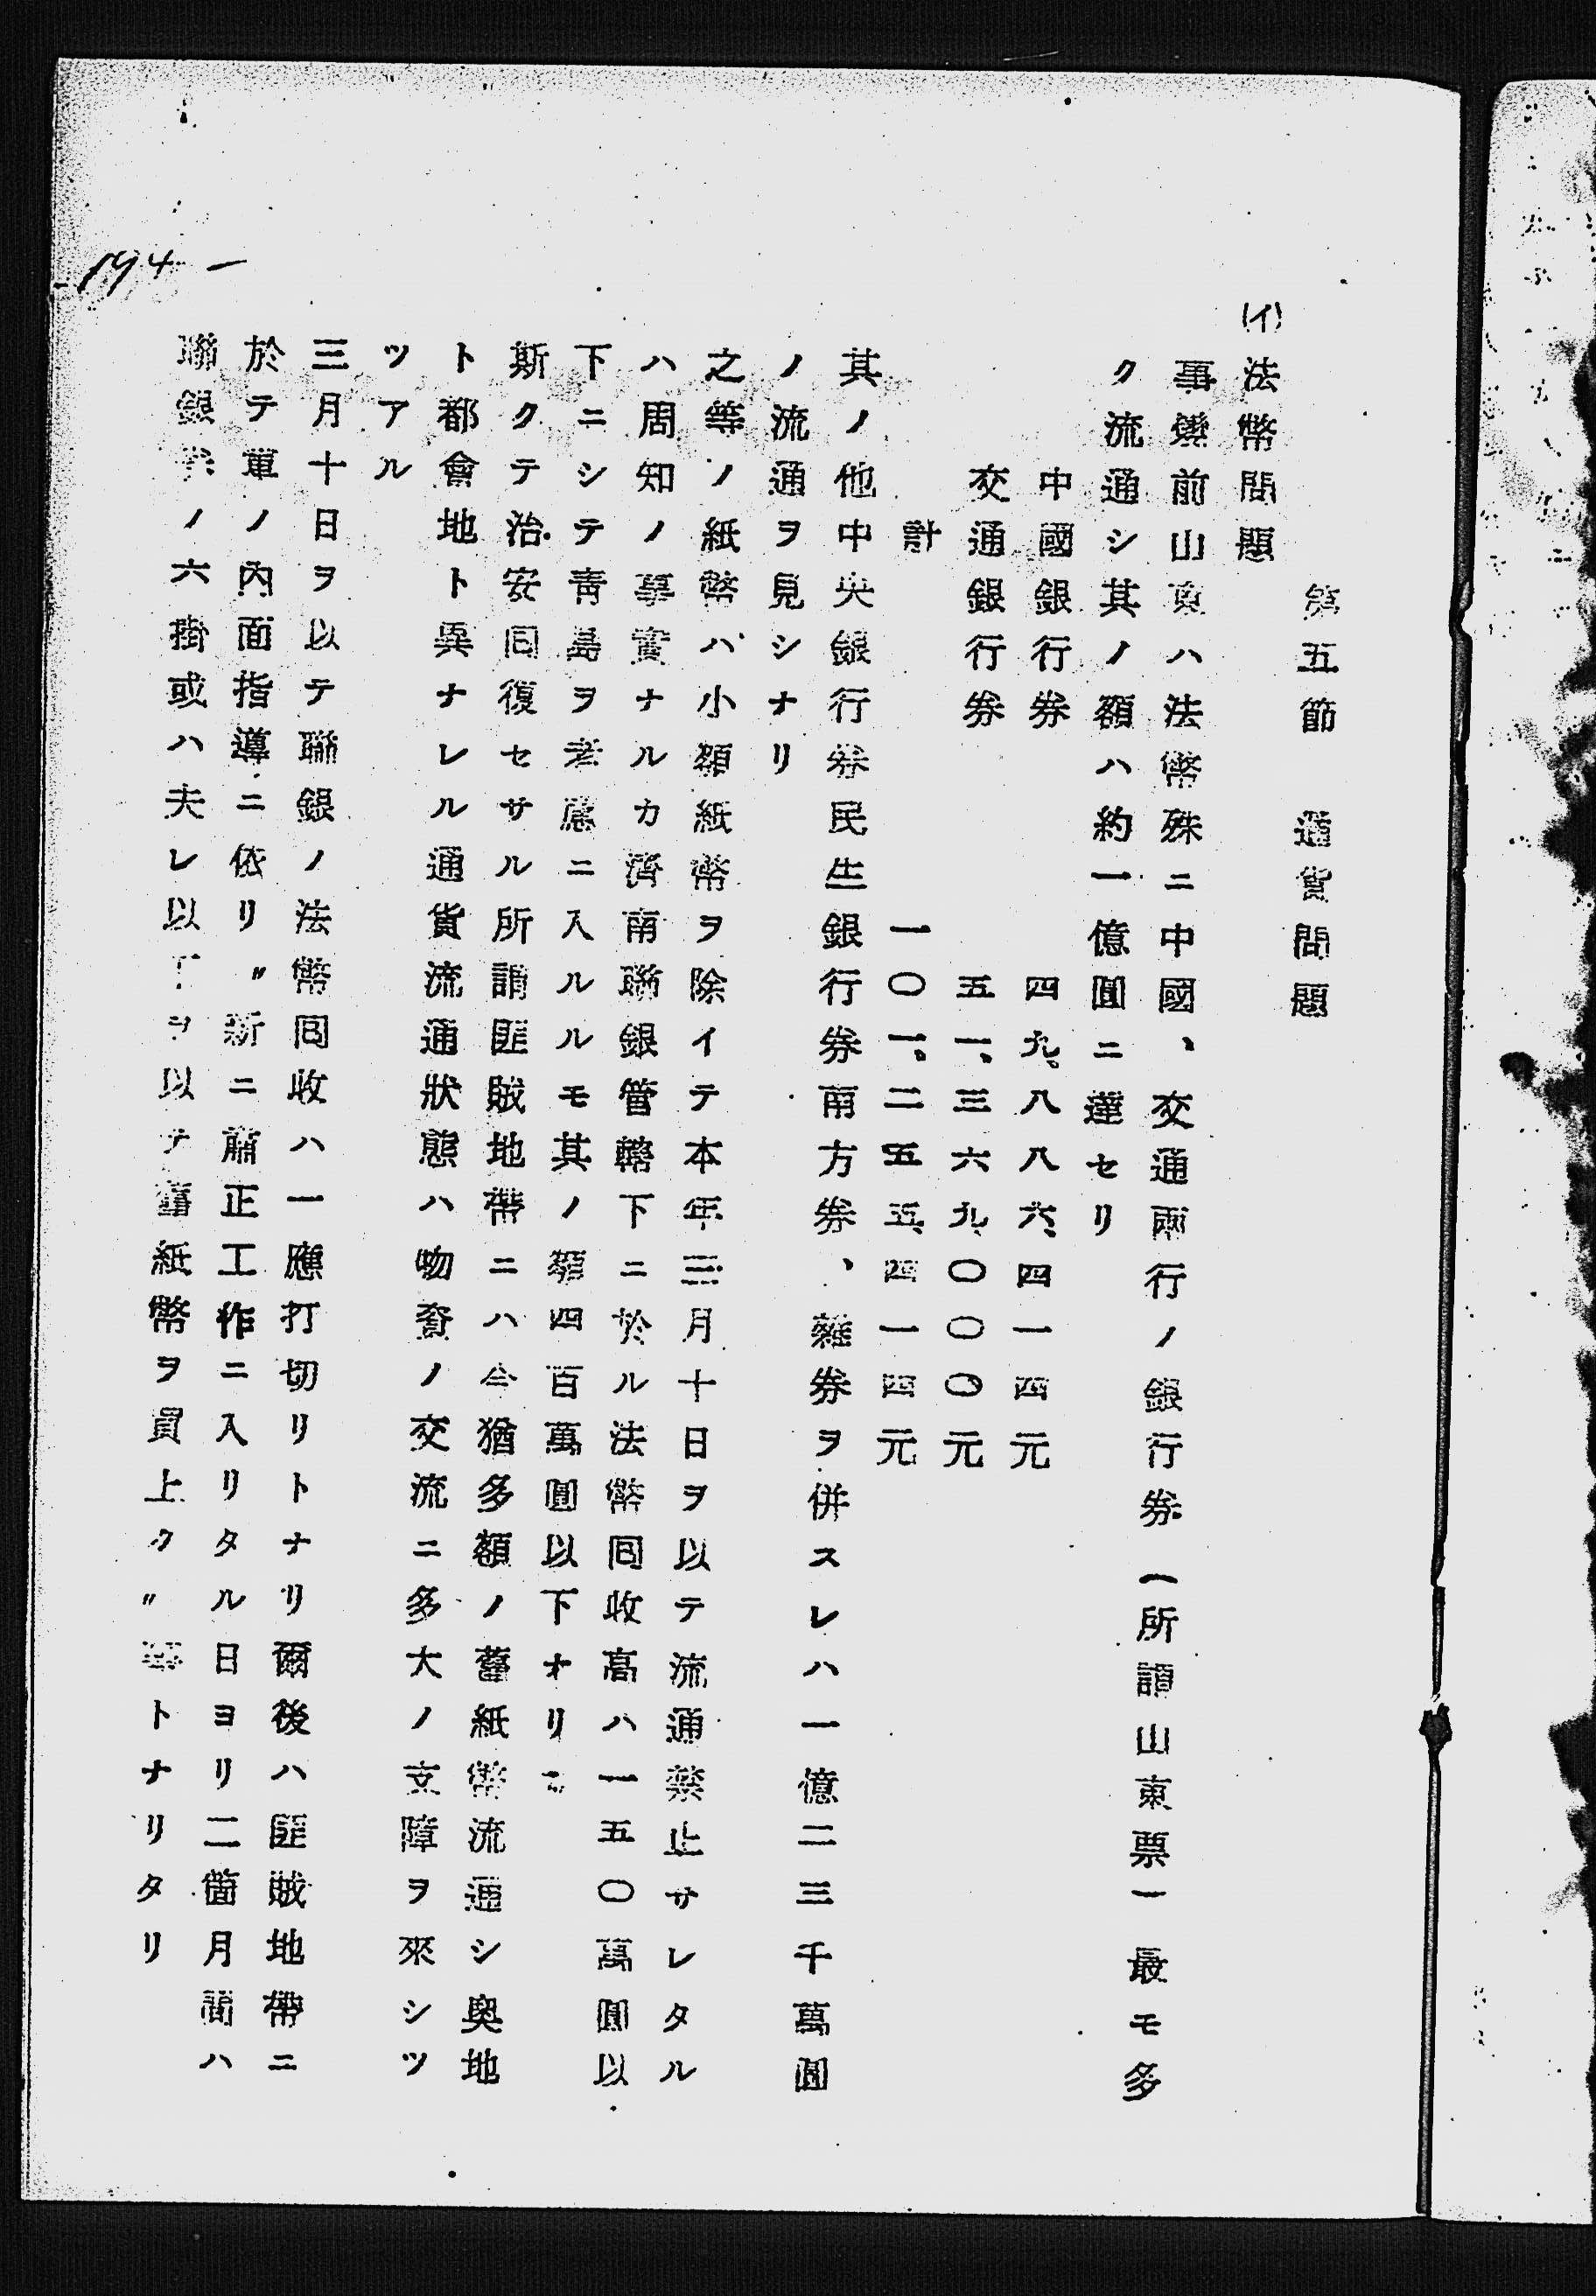 第五節　通貨問題
(イ)法幣問題
事變前山東ハ法幣殊ニ中國、交通兩行ノ銀行券(所謂山東票)最モ多
ク流通シ其ノ額ハ約一億圓ニ達セリ
中國銀行券　四九、八八六、四一四元
交通銀行券　五一、三六九、〇〇〇元
計　一〇一、二五五、四一四元
其ノ他中央銀行券民生銀行券南方券、雜券ヲ併スレハ一億二三千萬圓
ノ流通ヲ見シナリ
之等ノ紙幣ハ小額紙幣ヲ除イテ本年三月十日ヲ以テ流通禁止サレタル
ハ周知ノ事實ナルカ濟南聯銀管轄下ニ於ル法幣回收高ハ一五〇萬圓以
下ニシテ靑島ヲ考慮ニ入ルルモ其ノ額四百萬圓以下オリ
斯クテ治安回復セサル所謂匪賊地帶ニハ今猶多額ノ舊紙幣流通シ奥地
ト都會地ト異ナレル通貨流通狀態ハ物資ノ交流ニ多大ノ支障ヲ來シツ
ツアル
三月十日ヲ以テ聯銀ノ法幣回收ハ一應打切リトナリ爾後ハ匪賊地帶ニ
於テ軍ノ內面指導ニ依リ〃新ニ肅正工作ニ入リタル日ヨリ二箇月間ハ
聯銀券ノ六掛或ハ夫レ以下ヲ以テ舊紙幣ヲ買上ク〃トナリタリ
194 —